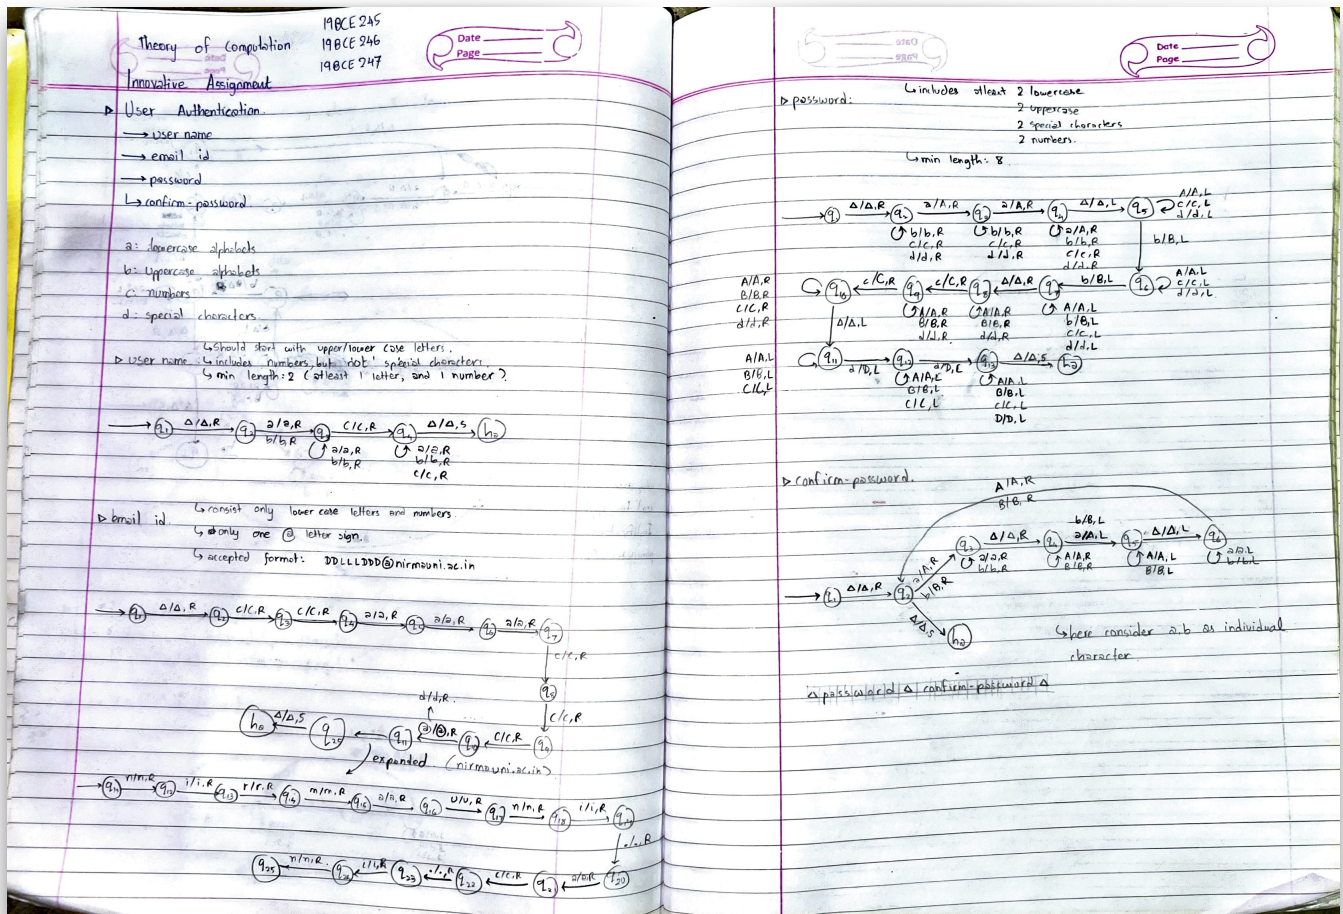 19BCE245
Theory of Computation 19BCE246
19BCE247
Date
Page
Innovative Assignment
▷ User Authentication.
→ user name
→ email id
→ password
↳ confirm-password.
a: lowercase alphabets
b: uppercase alphabets
c: numbers
d: special characters.
↳ should start with upper/lower case letters.
▷ user name. ↳ includes numbers, but 'not' special characters.
↳ min length: 2 (atleast 1 letter, and 1 number).
q1 Δ/Δ,R q2 a/a,R c/c,R q4 Δ/Δ,S ha
b/b,R
a/a,R a/a,R
b/b,R b/b,R
c/c,R
↳ consist only lower case letters and numbers.
▷ email id. ↳ only one @ letter sign.
↳ accepted format: DDLLLDDD@nirmauni.ac.in
q1 Δ/Δ,R q2 c/c,R q3 c/c,R q4 a/a,R q5 a/a,R q6 a/a,R q7
c/c,R
q8
d/d,R. c/c,R
ha Δ/Δ,S q25 q11 @/@,R q10 c/c,R q9
expanded (nirmauni.ac.in)
q11 n/n,R q12 i/i,R q13 r/r,R q14 m/m,R q15 a/a,R q16 u/u,R q17 n/n,R q18 i/i,R q19
./.,R
q25 n/n,R. q24 i/i,R q23 ./.,R q22 c/c,R q21 a/a,R q20
Date
Page
▷ password: ↳ includes atleast 2 lowercase
2 uppercase
2 special characters
2 numbers.
↳ min length: 8.
A/A,L
q1 Δ/Δ,R q2 a/A,R q3 a/A,R q4 Δ/Δ,L q5 c/c,L
d/d,L
b/b,R b/b,R a/A,R
c/c,R c/c,R b/b,R
d/d,R d/d,R c/c,R
d/d,R
b/B,L
A/A,R A/A,L
B/B,R q10 c/C,R q9 c/C,R q8 Δ/Δ,R q7 b/B,L q6 c/c,L
C/C,R d/d,L
d/d,R
A/A,R A/A,R A/A,L
B/B,R B/B,R b/B,L
d/d,R d/d,R c/c,L
d/d,L
Δ/Δ,L
A/A,L q11 d/D,L q12 d/D,L q13 Δ/Δ,S ha
B/B,L
C/C,L
A/A,L A/A,L
B/B,L B/B,L
C/C,L C/C,L
D/D,L
▷ confirm-password.
A/A,R
B/B,R
b/B,L
q3 Δ/Δ,R q4 a/A,L q5 Δ/Δ,L q6
a/a,R A/A,R A/A,L a/a,L
b/b,R B/B,R B/B,L b/b,L
a/A,R
b/B,R
q1 Δ/Δ,R q2
Δ/Δ,S
ha
↳ here consider a,b as individual
character
Δ password Δ confirm-password Δ